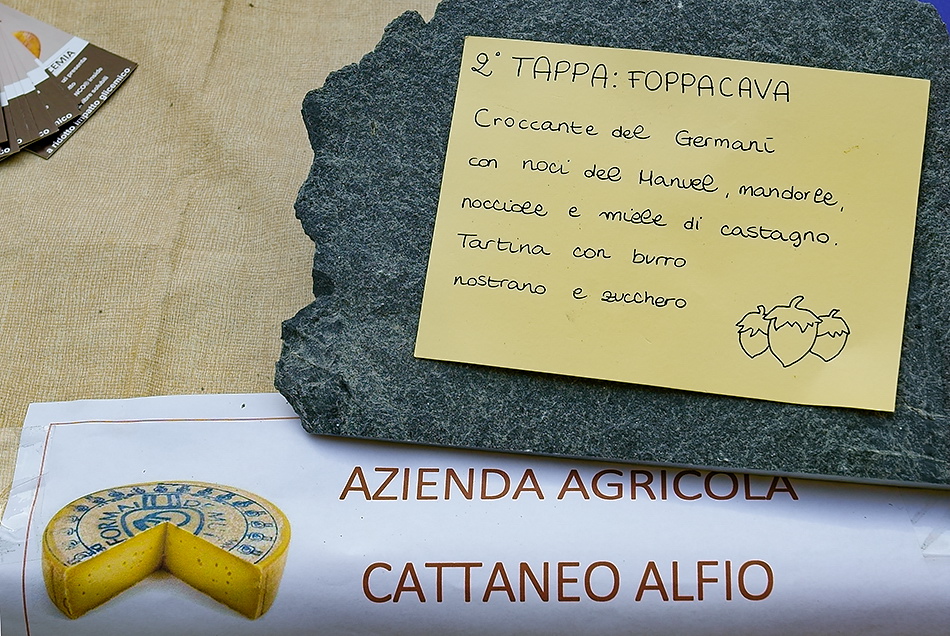 2° TAPPA: FOPPACAVA
Croccante del Germani
con noci del Manuel, mandorle,
nocciole e miele di castagno.
Tartina con burro
nostrano e zucchero
AZIENDA AGRICOLA
CATTANEO ALFIO
FORMAI DE MUT
a ridotto impatto glicemico